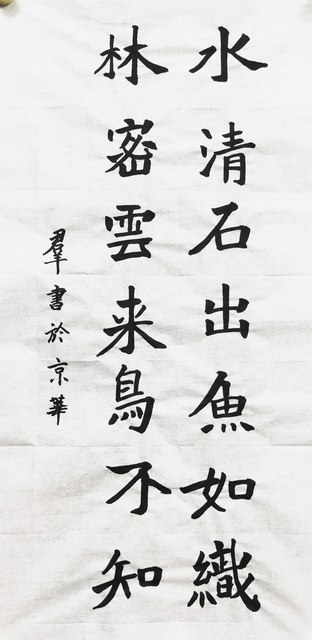 水清石出魚如織
林密雲来鳥不知
羣書於京華